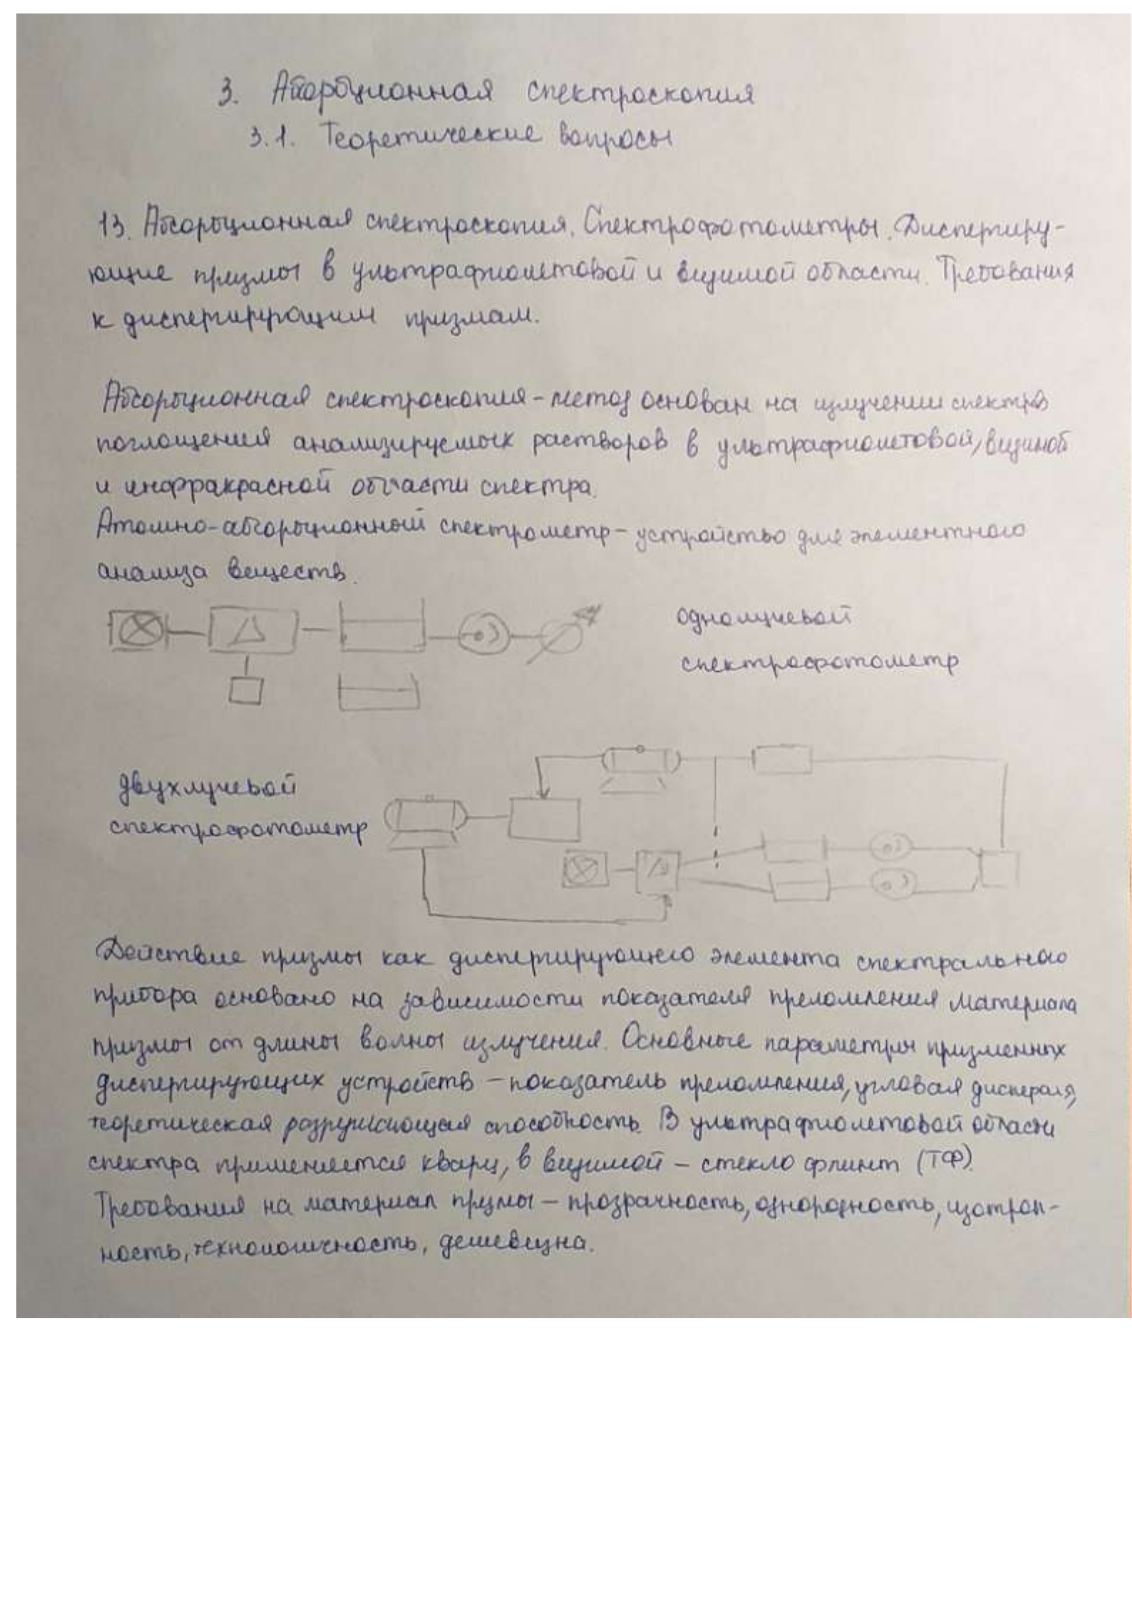 3. Абсорбционная спектроскопия
3.1. Теоретические вопросы
13. Абсорбционная спектроскопия. Спектрофотометры. Диспергиру-
ющие призмы в ультрафиолетовой и видимой области. Требования
к диспергирующим призмам.
Абсорбционная спектроскопия - метод основан на излучении спектров
поглощения анализируемых растворов в ультрафиолетовой, видимой
и инфракрасной области спектра.
Атомно-абсорбционный спектрометр - устройство для элементного
анализа веществ.
однолучевой
спектрофотометр
двухлучевой
спектрофотометр
Действие призмы как диспергирующего элемента спектрального
прибора основано на зависимости показателя преломления материала
призмы от длины волны излучения. Основные параметры призменных
диспергирующих устройств - показатель преломления, угловая дисперсия,
теоретическая разрушающая способность. В ультрафиолетовой области
спектра применяется кварц, в видимой - стекло флинт (ТФ).
Требования на материал призмы - прозрачность, однородность, изотроп-
ность, технологичность, дешевизна.